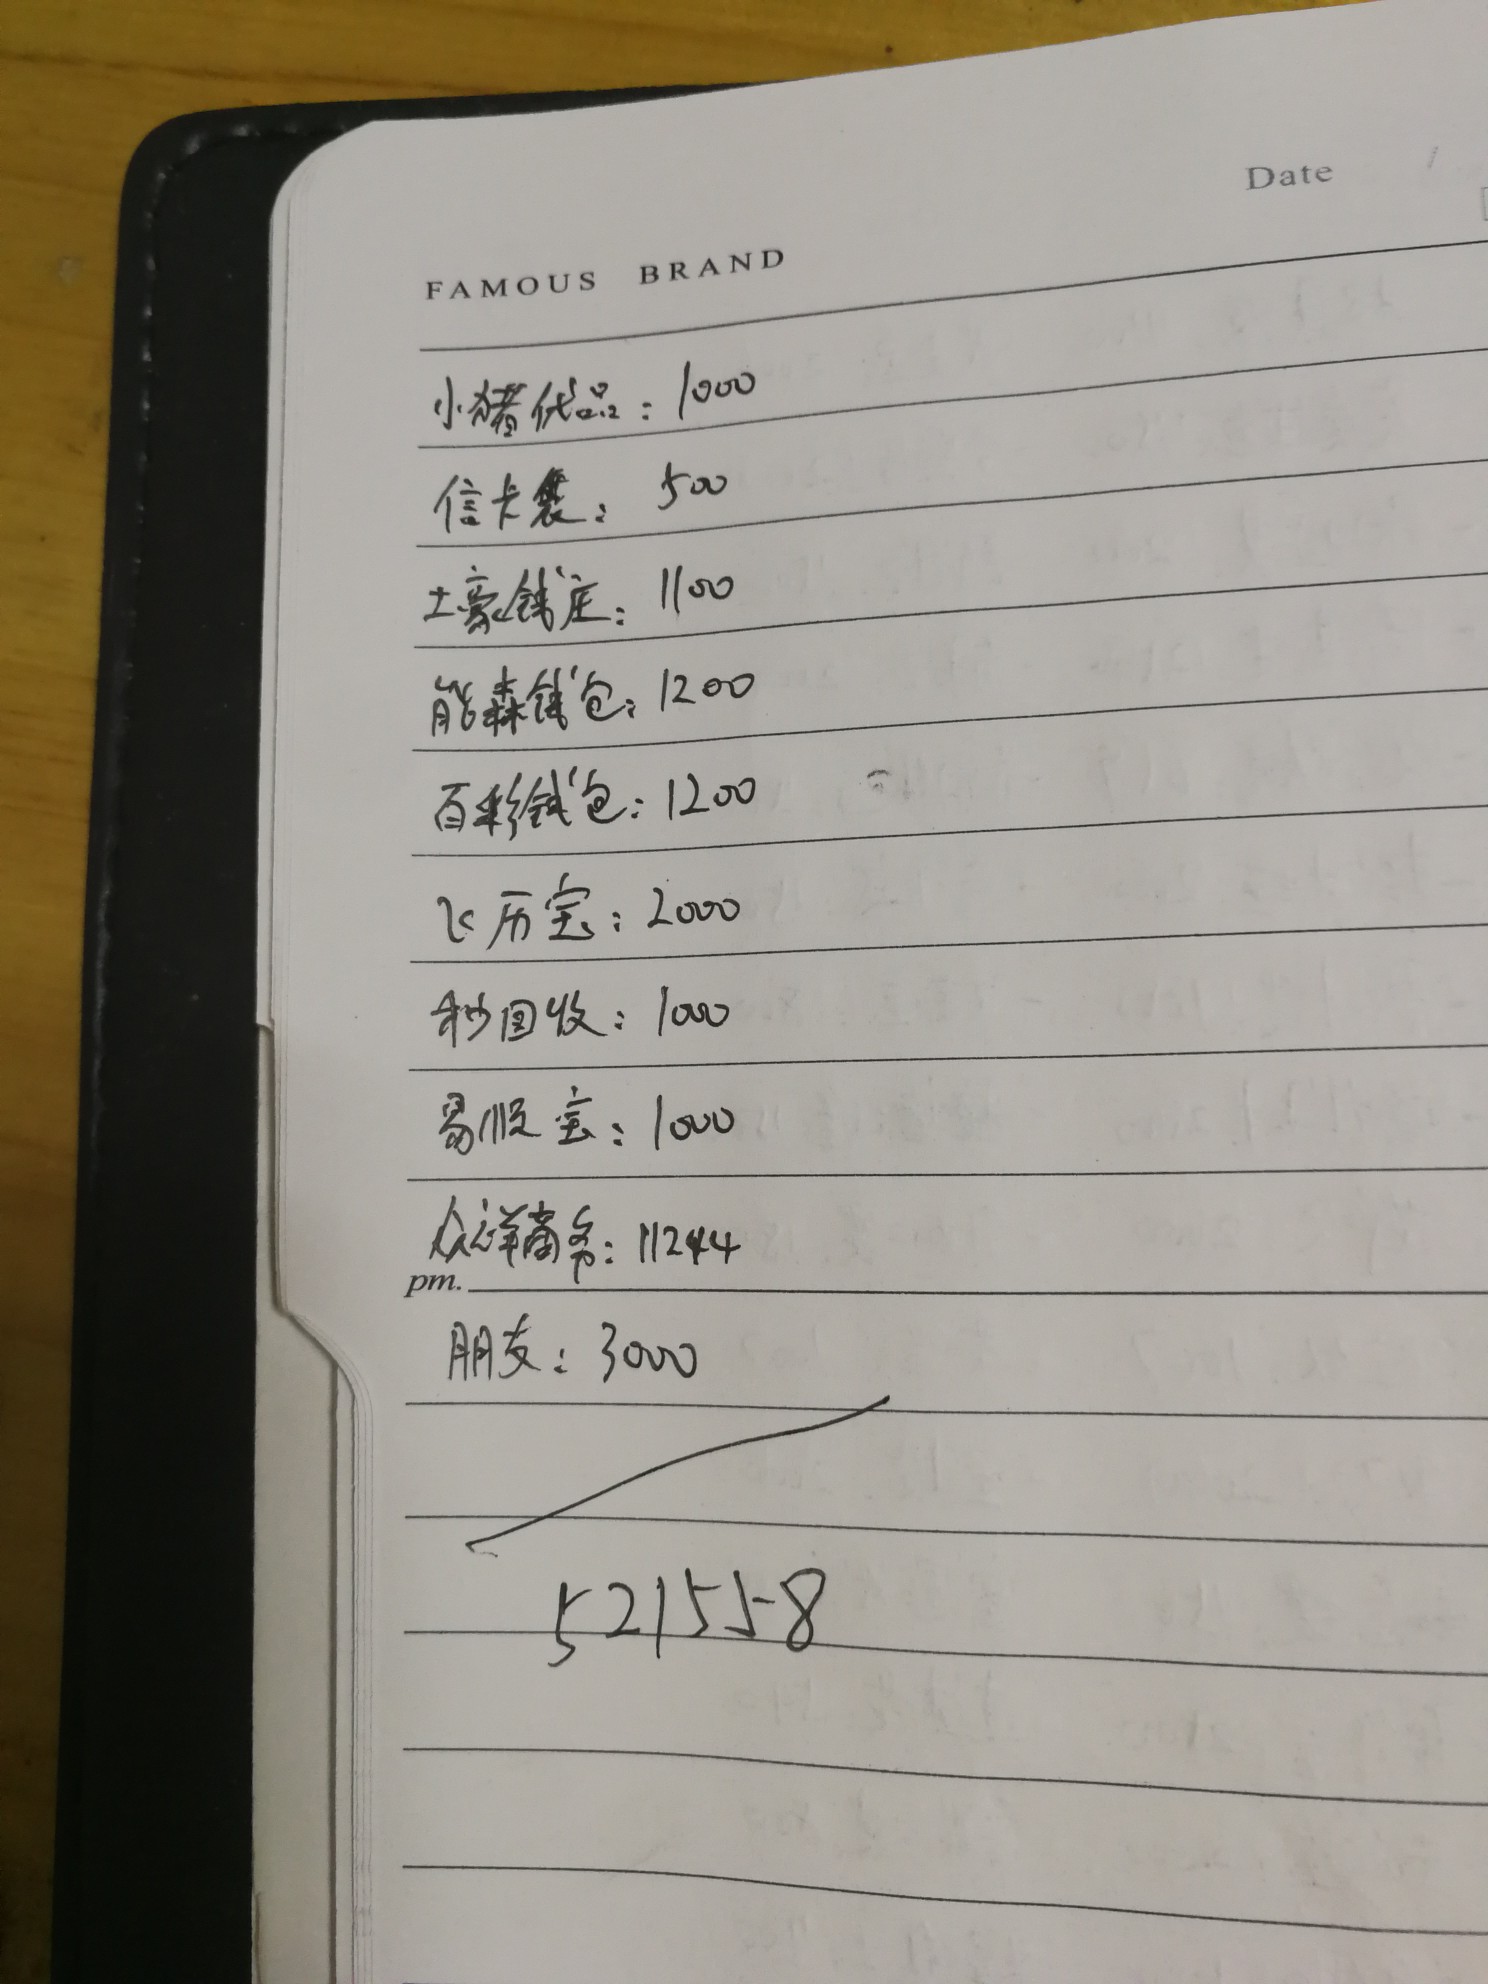 Date
FAMOUS BRAND
小猪优品：1000
信卡袋：500
土豪钱庄：1100
能森钱包：1200
百彩钱包：1200
飞历宝：2000
秒回收：1000
易股宝：1000
众祥商务：11244
pm.
朋友：3000
521558